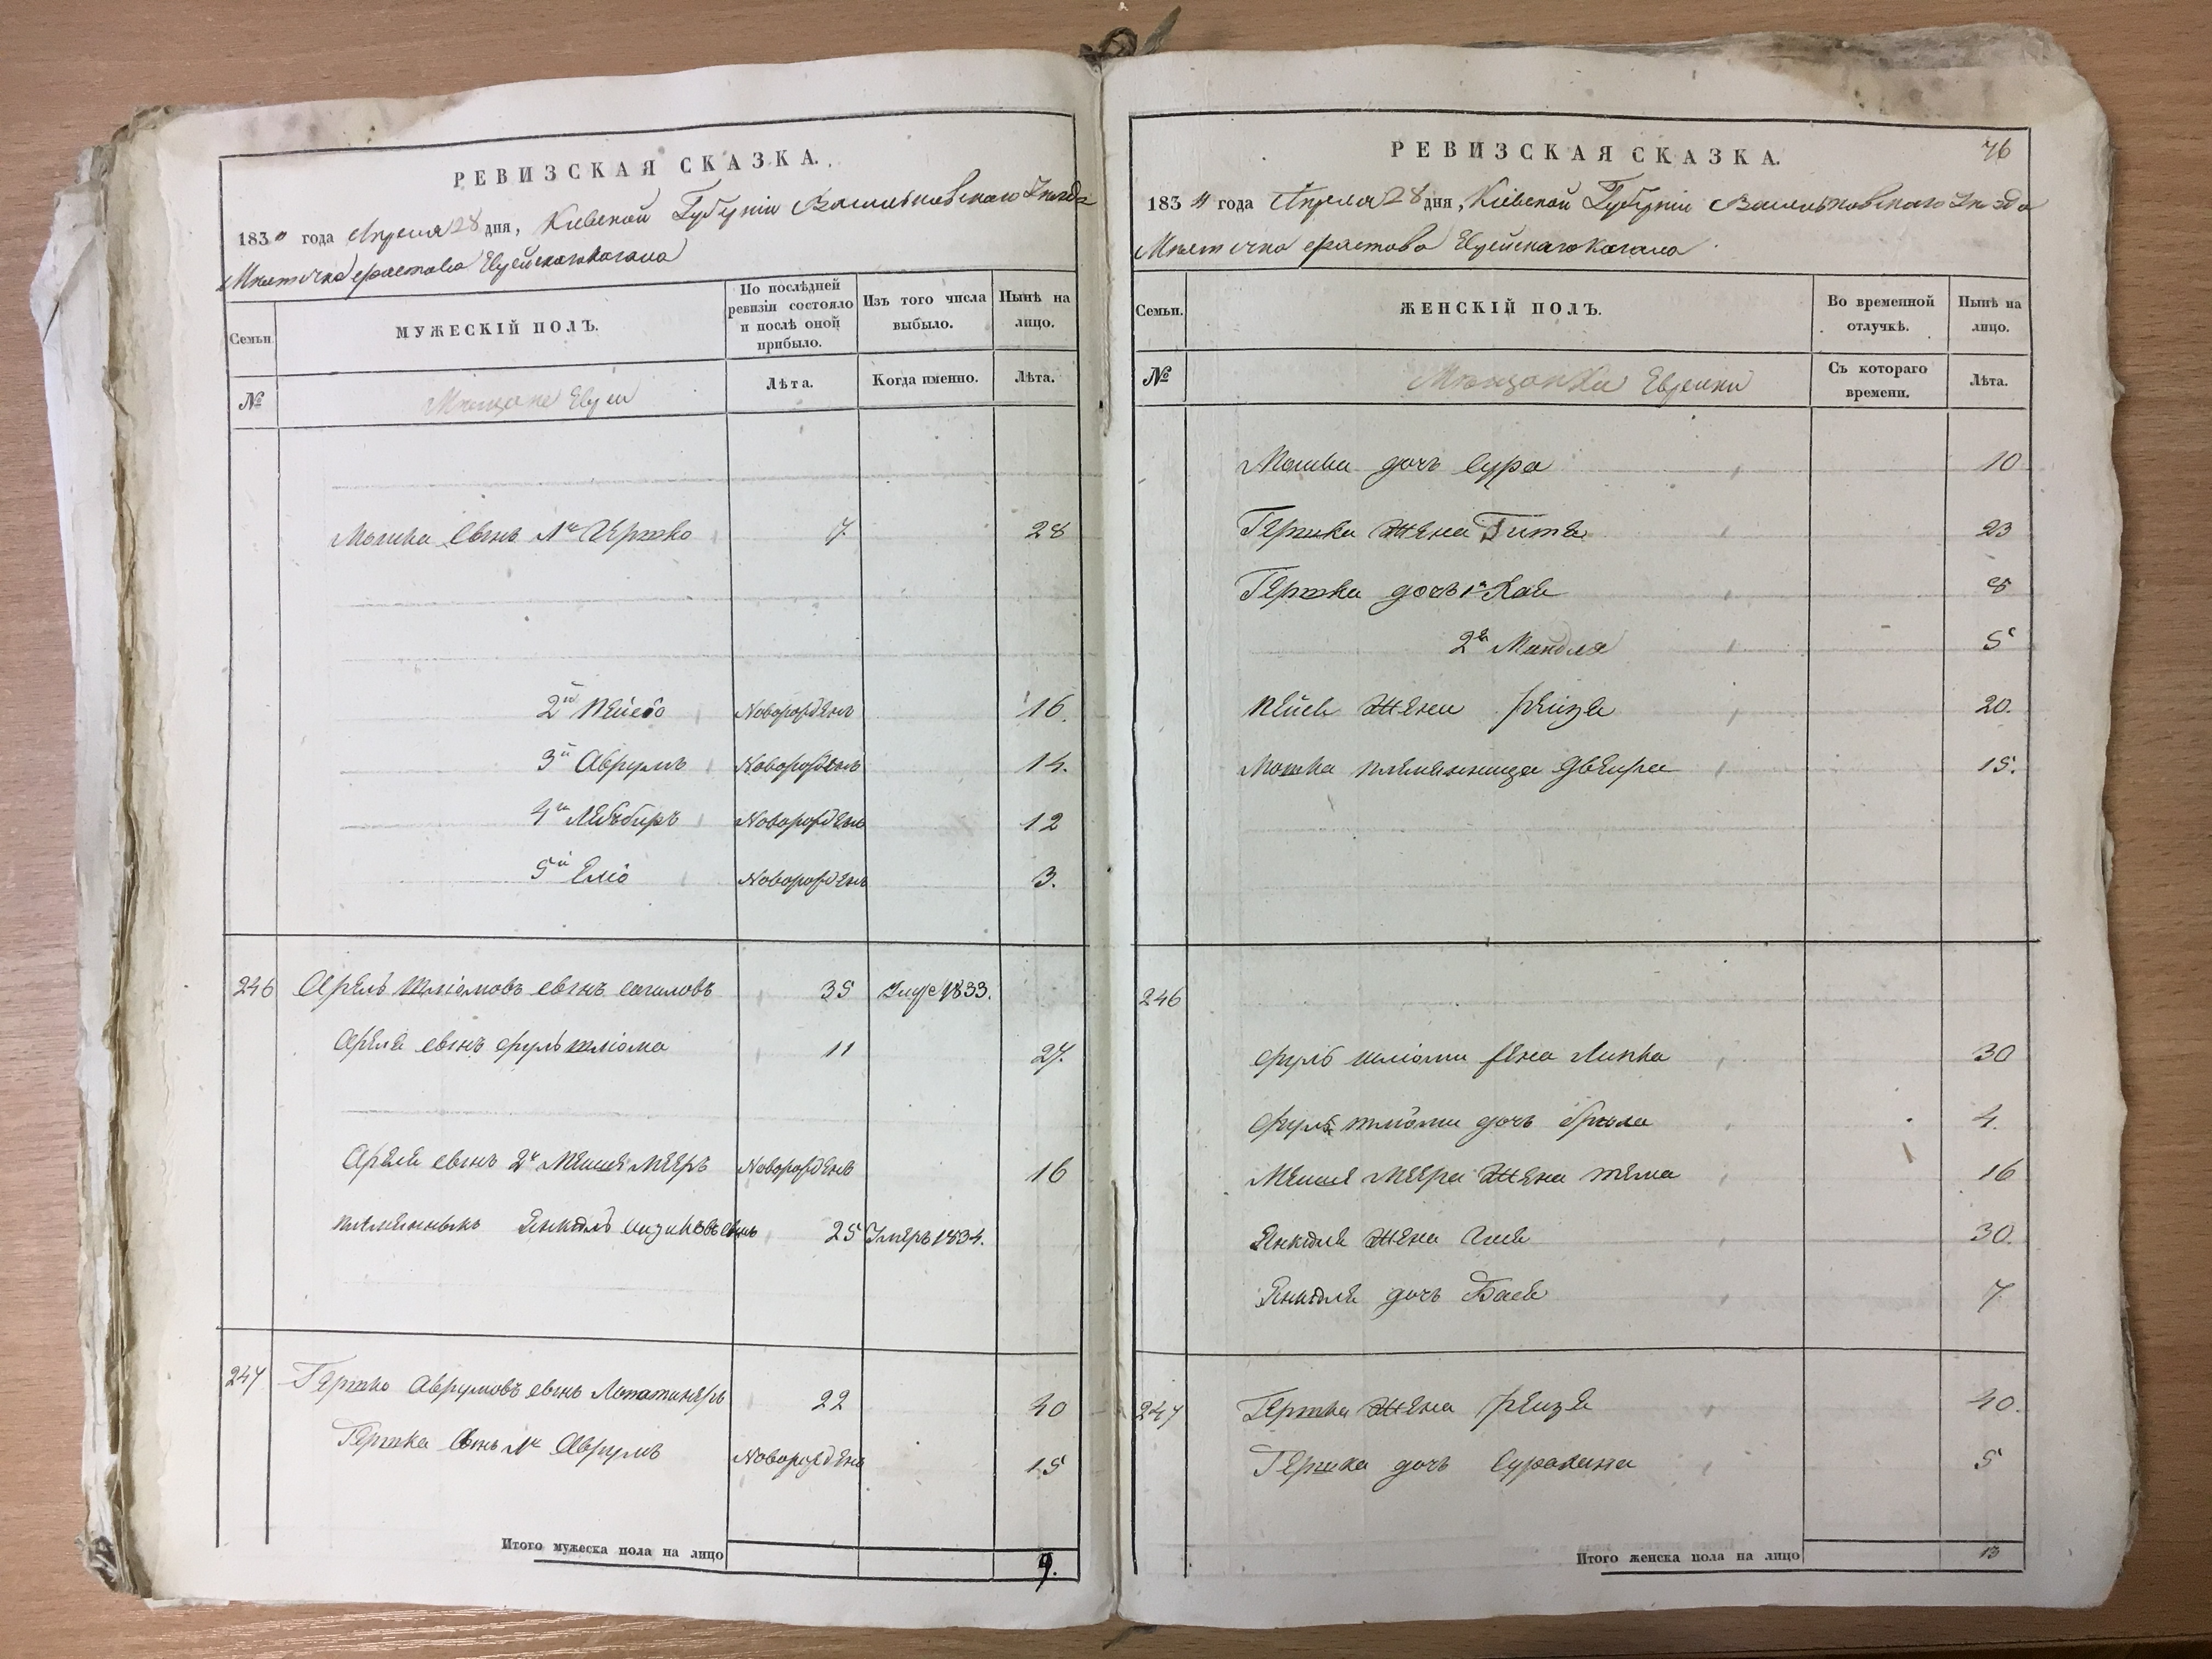 РЕВИЗСКАЯ СКАЗКА.
183 года Апреля 28 дня, Кіевской Губерніи Васильковскаго Уезда
Местечка Фастова Еврейскаго Кагала
Семьи.
МУЖЕСКІЙ ПОЛЪ.
По послѣдней ревизіи состояло и послѣ оной прибыло.
Изъ того числа выбыло.
Нынѣ на лицо.
№
Мещане Евреи
Лѣта.
Когда именно.
Лѣта.
Мошка сынъ 1й Гершко 7. 28
2й Пейсо Новорожденъ 16.
3й Аврумъ Новорожденъ 14.
4й Лейбъберъ Новорожденъ 12
5й Еліо Новорожденъ 3.
246 Арель Шліомовъ сынъ 35 1833.
Ареля сынъ Сруль Шліома 11 27.
Ареля сынъ 2й Меиръ Новорожденъ 16
племянникъ Янкель сынъ 25 Умеръ 1834.
247 Гершко Аврумовъ сынъ Лопатинеръ 22 40
Гершка сынъ 1й Аврумъ Новорожденъ 15
Итого мужеска пола на лицо 9.
РЕВИЗСКАЯ СКАЗКА.
76
183 года Апреля 28 дня, Кіевской Губерніи Васильковскаго Уезда
Местечка Фастова Еврейскаго Кагала
Семьи.
ЖЕНСКІЙ ПОЛЪ.
Во временной отлучкѣ.
Нынѣ на лицо.
№
Мещанки Еврейки
Съ котораго времени.
Лѣта.
Мошка дочь Сура 10
Гершка жена Гитя 23
Гершка дочь 1я Хая 8
2я Миндля 5
Пейси жена Рейзя 20.
Мошка племянница Двейра 15.
246
Сруль Шліоми жена Липка 30
Сруль Шліоми дочь 4.
Меира жена Тема 16
Янкеля жена 30.
Янкеля дочь Бася 7
247 Гершка жена Рейзя 40.
Гершка дочь Сурахана 5
Итого женска пола на лицо 13